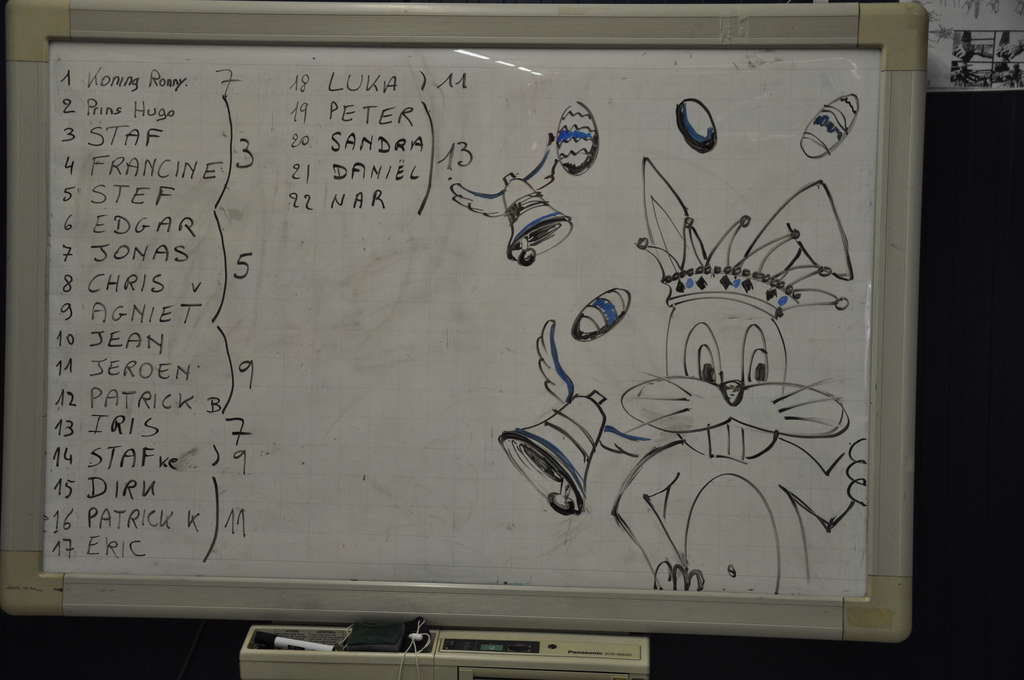 1 Koning Ronny. 7
2 Prins Hugo
3 STAF
4 FRANCINE
5 STEF
3
6 EDGAR
7 JONAS
8 CHRIS v
9 AGNIET
5
10 JEAN
11 JEROEN
12 PATRICK B
9
13 IRIS 7
14 STAFke ) 9
15 DIRK
16 PATRICK K
17 ERIC
11
18 LUKA ) 11
19 PETER
20 SANDRA
21 DANIËL
22 NAR
13
Panasonic